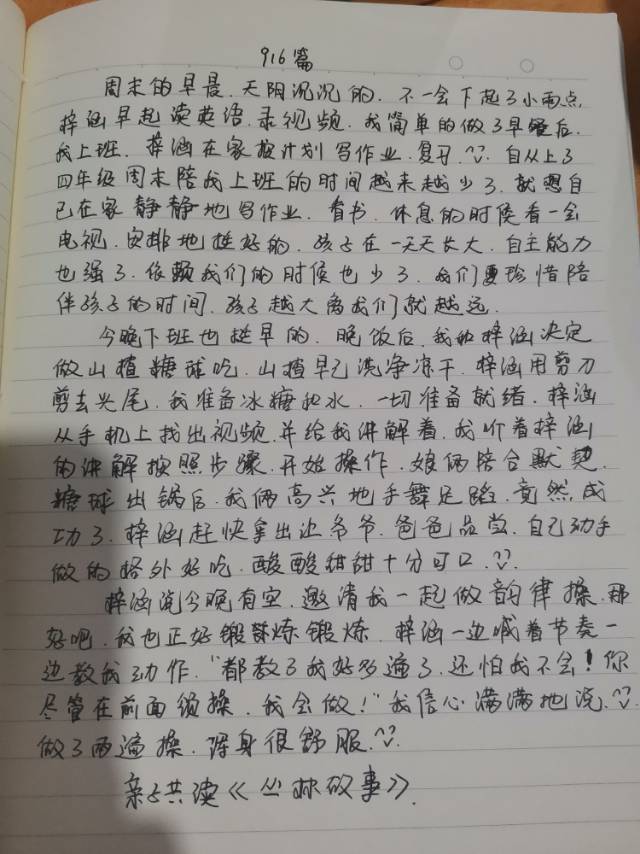 916篇
周末的早晨，天阴沉沉的，不一会下起了小雨点，
梓涵早起读英语，录视频，我简单的做了早餐后，
我上班，梓涵在家按计划写作业，复习。^_^自从上了
四年级周末陪我上班的时间越来越少了，就想自
己在家静静地写作业，看书，休息的时候看一会
电视，安排地挺好的，孩子在一天天长大，自主能力
也强了，依赖我们的时候也少了，我们要珍惜陪
伴孩子的时间，孩子越大离我们就越远。
今晚下班也挺早的，晚饭后，我和梓涵决定
做山楂糖球吃，山楂早已洗净凉干，梓涵用剪刀
剪去头尾，我准备冰糖和水，一切准备就绪，梓涵
从手机上找出视频，并给我讲解着，我听着梓涵
的讲解按照步骤，开始操作，娘俩陪合默契，
糖球出锅后，我俩高兴地手舞足蹈，竟然成
功了，梓涵赶快拿出让爷爷，爸爸品尝，自己动手
做的格外好吃，酸酸甜甜十分可口。^_^
梓涵说今晚有空，邀请我一起做韵律操，那
好吧，我也正好锻炼锻炼，梓涵一边喊着节奏一
边教我动作，“都教了我好多遍了，还怕我不会！你
尽管在前面领操，我会做！”我信心满满地说，^_^
做了两遍操，浑身很舒服，^_^
亲子共读《丛林故事》。